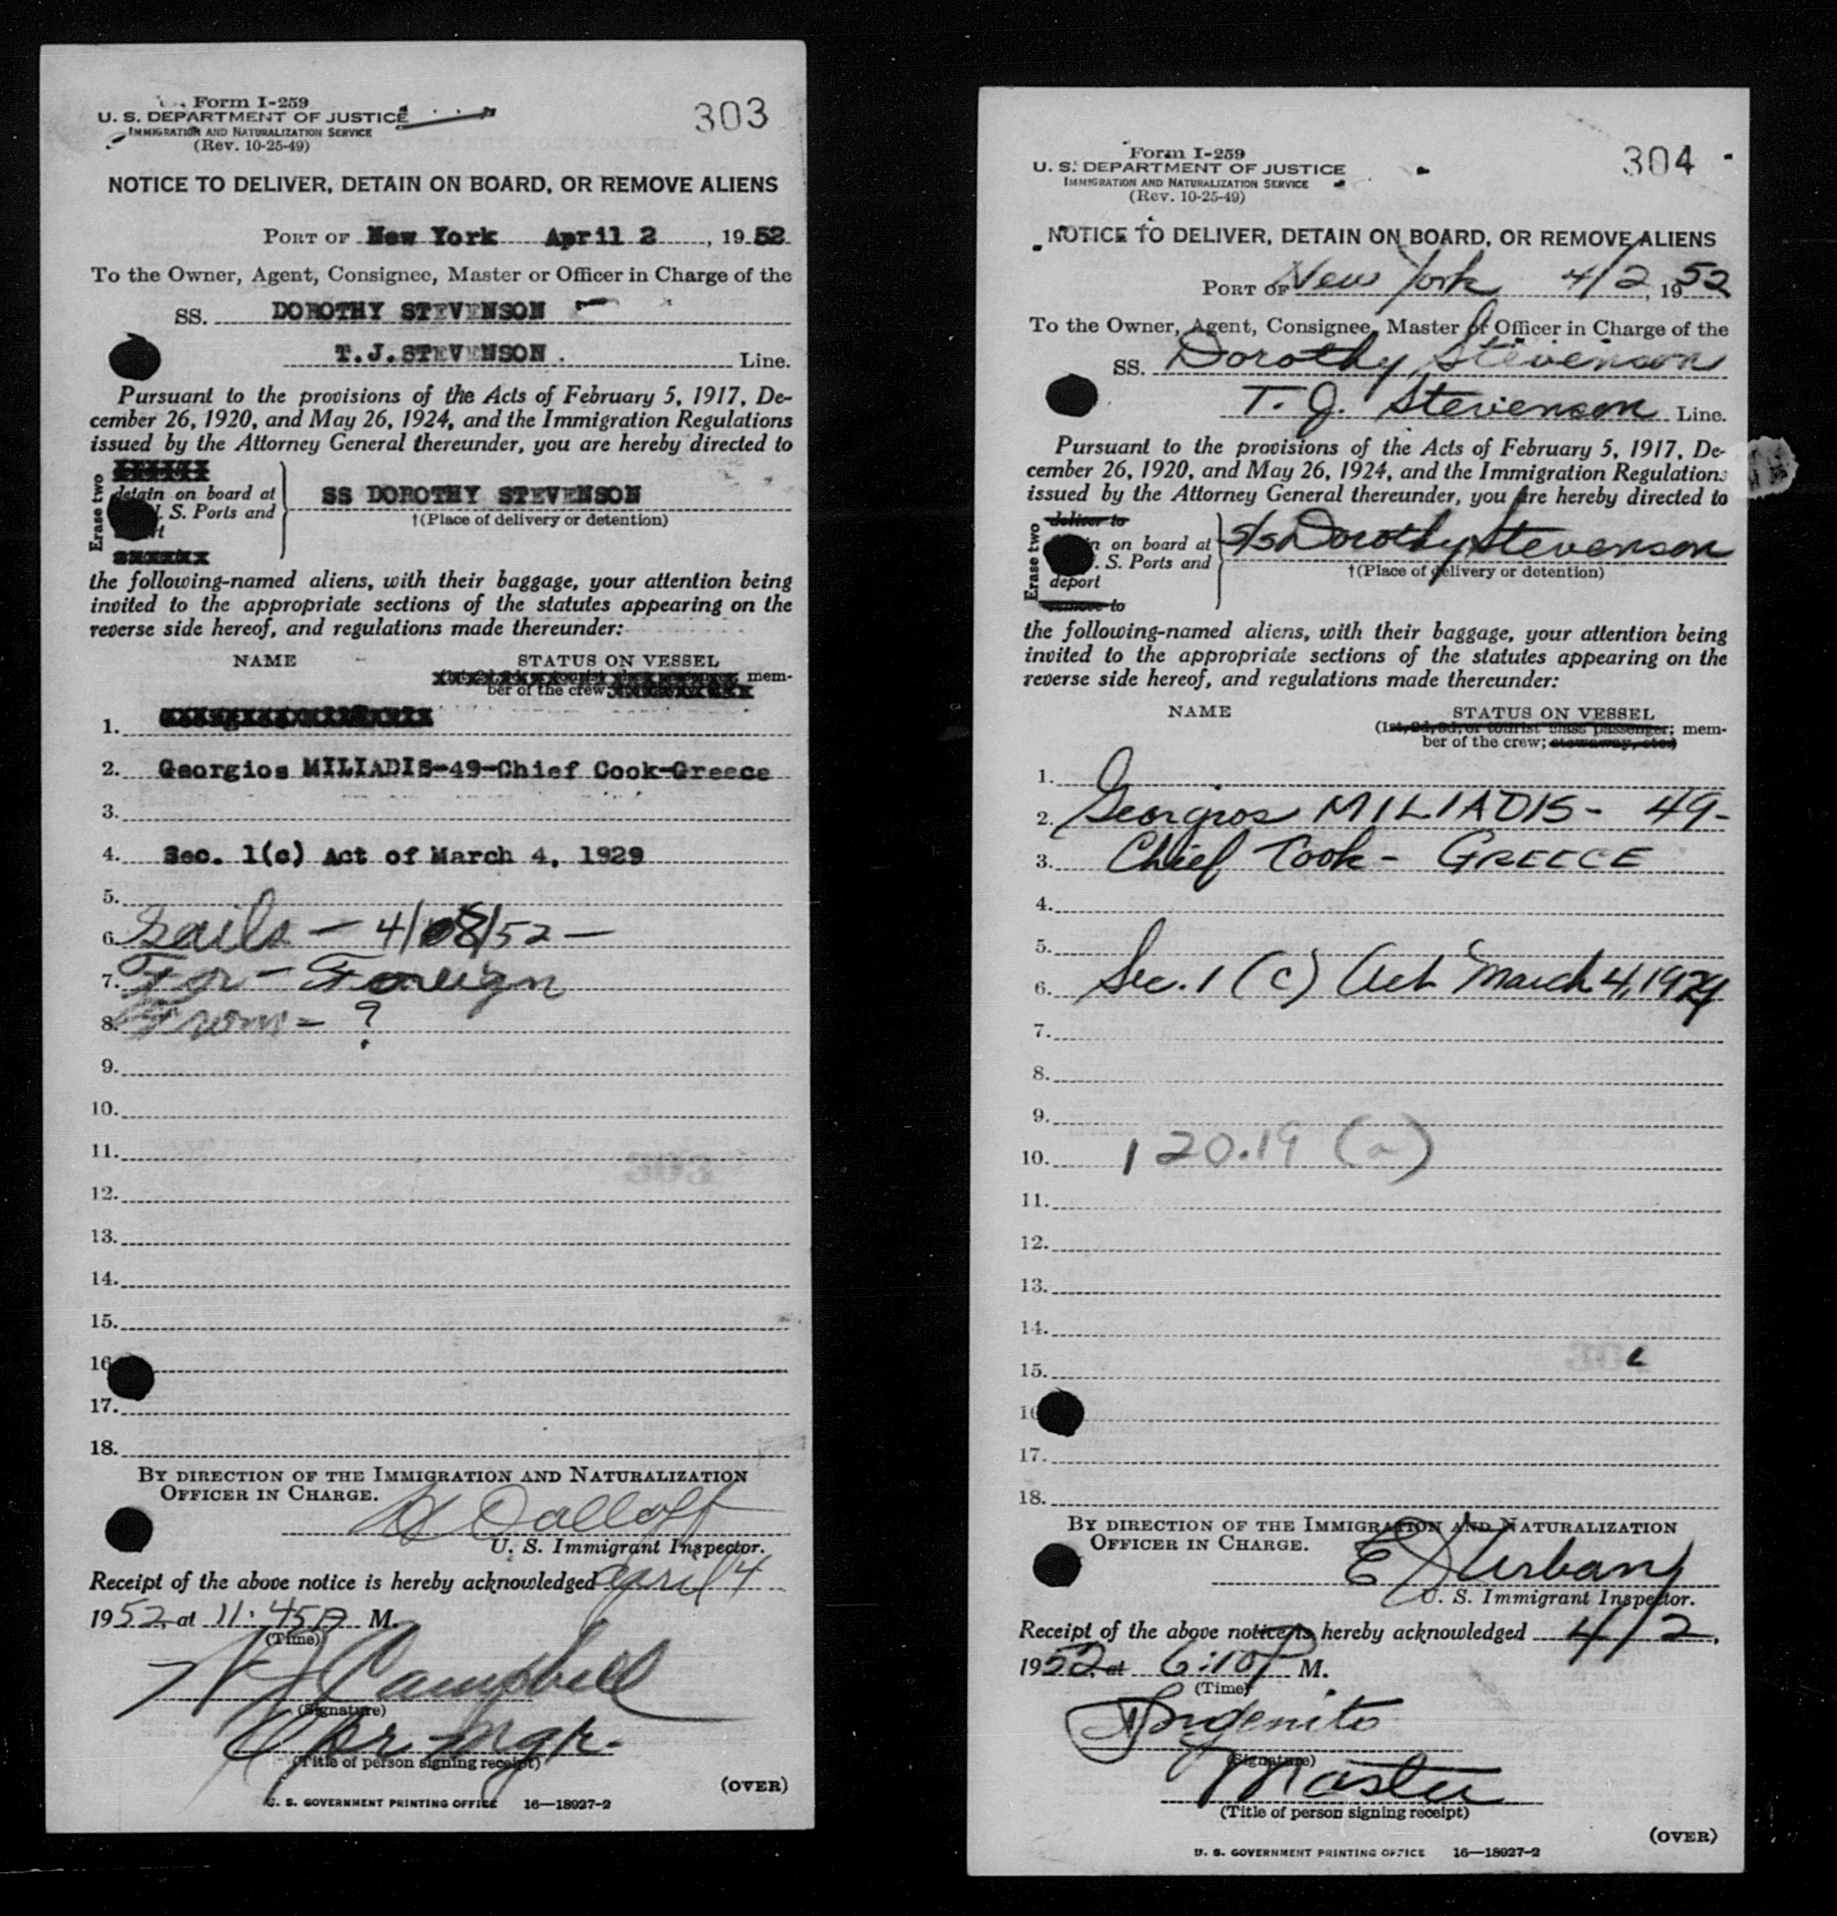 Form I-259
U. S. DEPARTMENT OF JUSTICE
IMMIGRATION AND NATURALIZATION SERVICE
(Rev. 10-25-49)
303
NOTICE TO DELIVER, DETAIN ON BOARD, OR REMOVE ALIENS
PORT OF New York April 2, 1952
To the Owner, Agent, Consignee, Master or Officer in Charge of the
SS. DOROTHY STEVENSON
T.J.STEVENSON. Line.
Pursuant to the provisions of the Acts of February 5, 1917, De-
cember 26, 1920, and May 26, 1924, and the Immigration Regulations
issued by the Attorney General thereunder, you are hereby directed to
Erase two
detain on board at
S. Ports and
SS DOROTHY STEVENSON
†(Place of delivery or detention)
the following-named aliens, with their baggage, your attention being
invited to the appropriate sections of the statutes appearing on the
reverse side hereof, and regulations made thereunder:
NAME STATUS ON VESSEL
mem-
ber of the crew;
1.
2. Georgios MILIADIS-49-Chief Cook-Greece
3.
4. Sec. 1(c) Act of March 4, 1929
5.
6. Sails - 4/08/52 -
7. For - Foreign
8. From - ?
9.
10.
11.
12.
13.
14.
15.
16
17.
18.
BY DIRECTION OF THE IMMIGRATION AND NATURALIZATION
OFFICER IN CHARGE.
U. S. Immigrant Inspector.
Receipt of the above notice is hereby acknowledged April 4
1952, at 11:45A M.
(Time)
Campbell
(Signature)
Opr Mgr.
(Title of person signing receipt)
(OVER)
U. S. GOVERNMENT PRINTING OFFICE 16—18927-2
Form I-259
U. S. DEPARTMENT OF JUSTICE
IMMIGRATION AND NATURALIZATION SERVICE
(Rev. 10-25-49)
304
NOTICE TO DELIVER, DETAIN ON BOARD, OR REMOVE ALIENS
PORT OF New York 4/2, 1952
To the Owner, Agent, Consignee, Master or Officer in Charge of the
SS. Dorothy Stevenson
T. J. Stevenson Line.
Pursuant to the provisions of the Acts of February 5, 1917, De-
cember 26, 1920, and May 26, 1924, and the Immigration Regulations
issued by the Attorney General thereunder, you are hereby directed to
Erase two
deliver to
on board at
S. Ports and
deport
remove to
S/S Dorothy Stevenson
†(Place of delivery or detention)
the following-named aliens, with their baggage, your attention being
invited to the appropriate sections of the statutes appearing on the
reverse side hereof, and regulations made thereunder:
NAME STATUS ON VESSEL
(1st, 2d, 3d, or tourist class passenger; mem-
ber of the crew; stowaway, etc.)
1.
2. Georgios MILIADIS - 49-
3. Chief Cook - GREECE
4.
5.
6. Sec. 1 (c) Act March 4, 1929
7.
8.
9.
10. 120.19 (a)
11.
12.
13.
14.
15.
16
17.
18.
BY DIRECTION OF THE IMMIGRATION AND NATURALIZATION
OFFICER IN CHARGE.
E J Urban
U. S. Immigrant Inspector.
Receipt of the above notice is hereby acknowledged 4/2,
1952, at 6:10 P M.
(Time)
Ingenito
(Signature)
Master
(Title of person signing receipt)
(OVER)
U. S. GOVERNMENT PRINTING OFFICE 16—18927-2